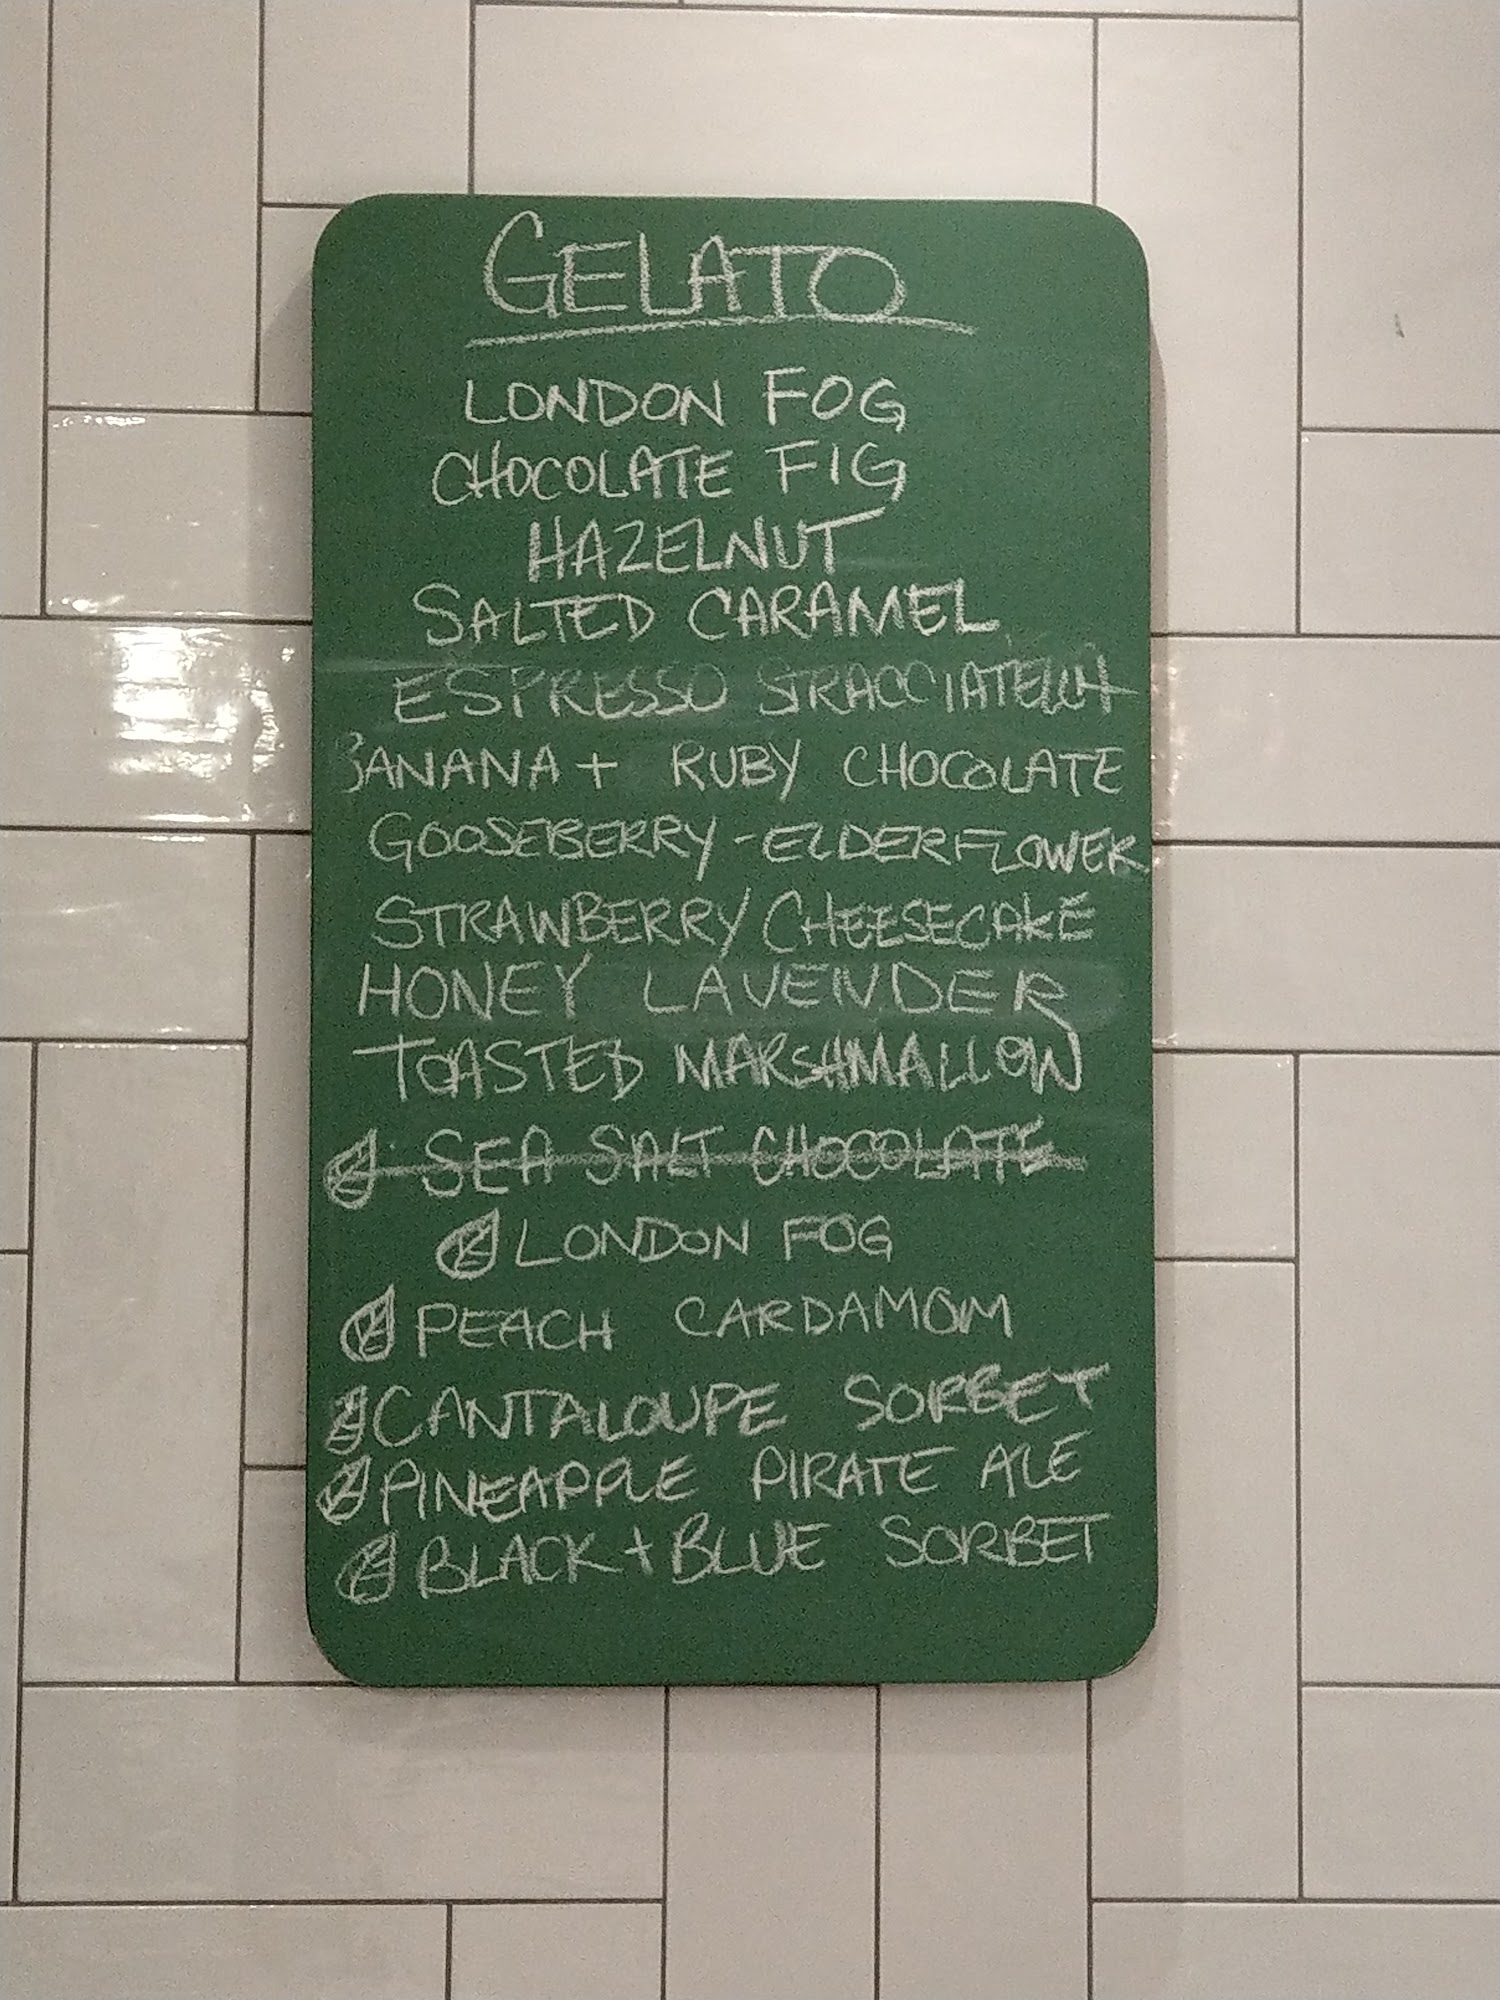 GELATO
LONDON FOG
CHOCOLATE FIG
HAZELNUT
SALTED CARAMEL
ESPRESSO STRACCIATELLA
BANANA + RUBY CHOCOLATE
GOOSEBERRY - ELDERFLOWER
STRAWBERRY CHEESECAKE
HONEY LAVENDER
TOASTED MARSHMALLOW
SEA SALT CHOCOLATE
LONDON FOG
PEACH CARDAMOM
CANTALOUPE SORBET
PINEAPPLE PIRATE ALE
BLACK + BLUE SORBET